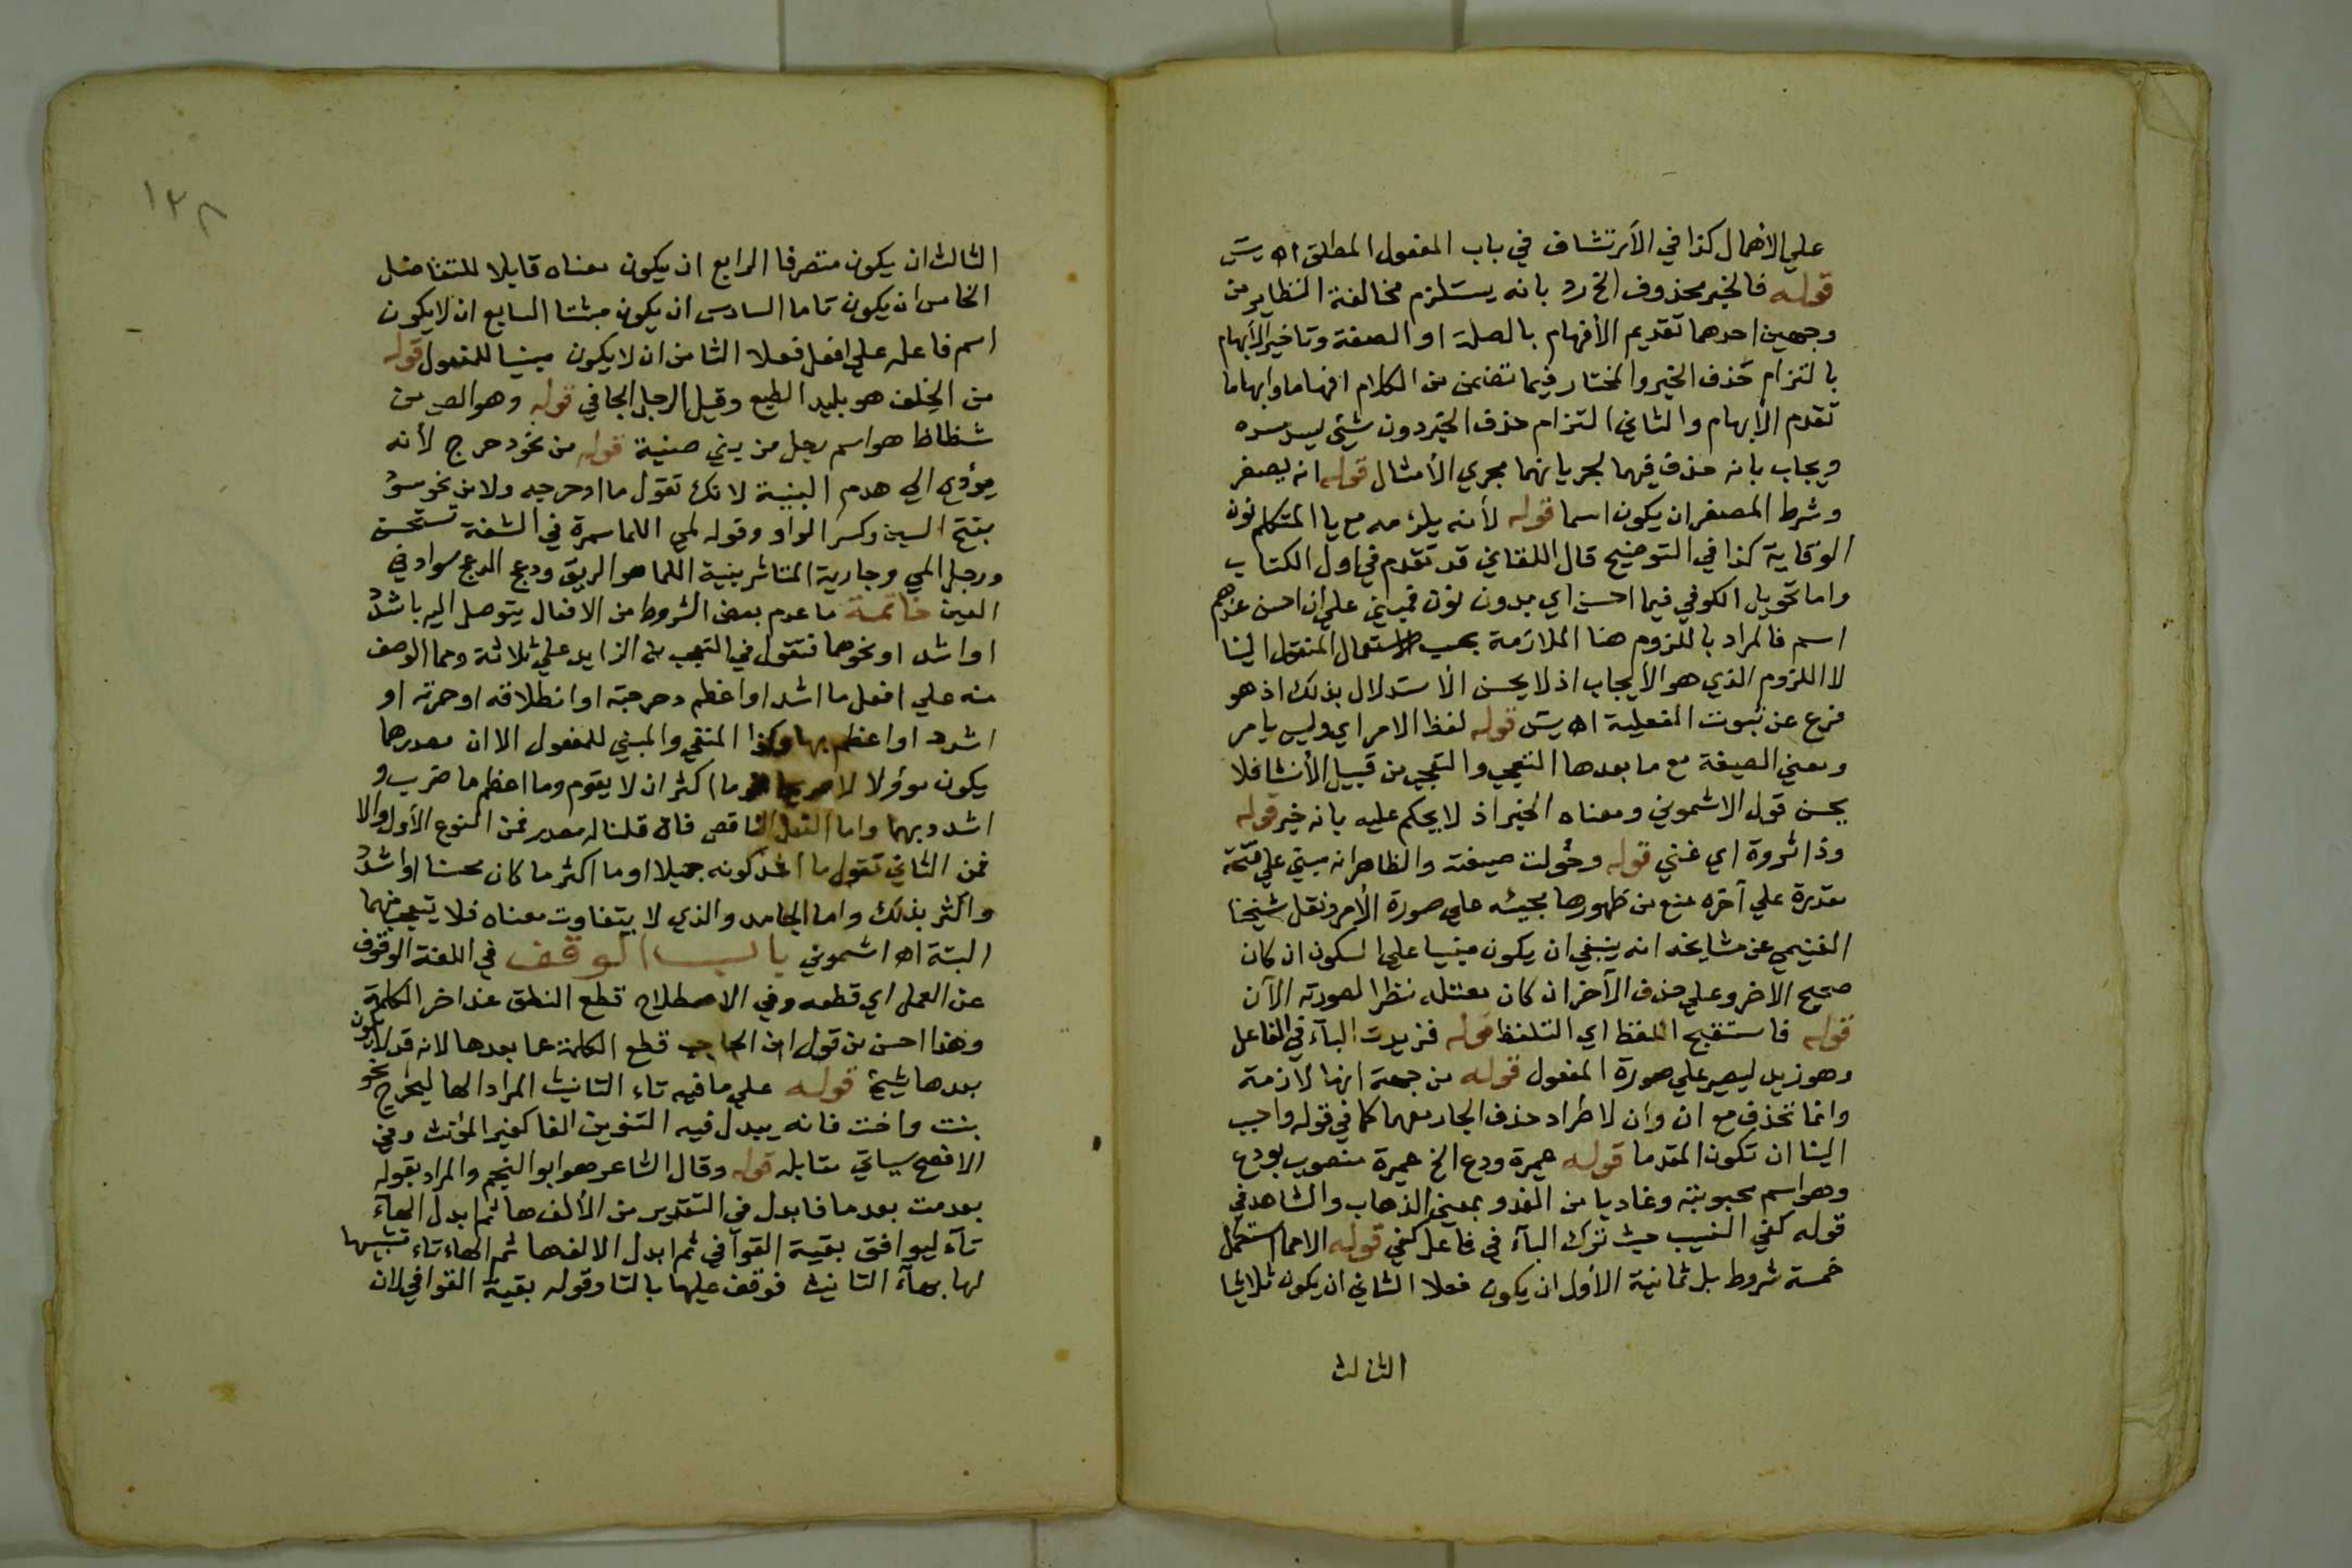 علي الأهمال كذا في الأرتشاف في باب المفعول المطلق اه يس
قوله فالخبر محذوف الخ رد بانه يستلزم مخالفة النظاير من
وجهين احدهما تقديم الأفهام بالصلة او الصفة وتاخير الأبهام
بالتزام حذف الخبر والمختار فيما تضمن من الكلام افهاما وابهاما
تقدم الأبهام والثاني التزام حذف الخبر دون شيئ يسد مسده
ويجاب بانه حذف فيهما لجريانهما مجري الأمثال قوله انه يصغر
وشرط المصغر ان يكون اسما قوله لأنه يلزمه مع يا المتكلم نون
الوقاية كذا في التوضيح قال اللقاني قد تقدم في اول الكتاب
واما تحويل الكوفي فيما احسن اي بدون نون فمبني علي ان احسن عندهم
اسم فالمراد باللزوم هنا الملازمة بحسب الاستعمال المنقول الينا
لا اللزوم الذي هو الأيجاب اذ لا يحسن الأستدلال بذلك اذ هو
فرع عن ثبوت الفعلية اه يس قوله لفظ الامر اي وليس بامر
ومعني الصيغة مع ما بعدها التعجب والتعجب من قبيل الأنشا فلا
يحسن قول الاشموني ومعناه الخبر اذ لا يحكم عليه بانه خبر قوله
وذا ثروة اي غني قوله وحولت صيغته والظاهر انه مبني علي فتحة
مقدرة علي آخره منع من ظهورها مجيئه علي صورة الأمر ونقل شيخنا
الغنيمي عن مشايخه انه ينبغي ان يكون مبنيا علي السكون ان كان
صحيح الاخر وعلي حذف الآخر ان كان معتله نظرا لصورته الآن
قوله فاستقبح اللفظ اي التلفظ قوله فزيدت البآء في الفاعل
وهو زيد ليصير علي صورة المفعول قوله من جهة انها لازمة
وانما تحذف مع ان وأن لاطراد حذف الجار معهما كما في قوله واحبب
الينا ان تكون المقدما قوله عميرة ودع الخ عميرة منصوب بودع
وهو اسم محبوبته وغاديا من الغدو بمعني الذهاب والشاهد في
قوله كفي الشيب حيث ترك البآء في فاعل كفي قوله الاما استكمل
خمسة شروط بل ثمانية الأول ان يكون فعلا الثاني ان يكون ثلاثيا
الثالث
١٣٨
الثالث ان يكون متصرفا الرابع ان يكون معناه قابلا للتفاضل
الخامس ان يكون تاما السادس ان يكون مثبتا السابع ان لا يكون
اسم فاعله علي افعل فعلا الثامن ان لا يكون مبنيا للمفعول قوله
من الجلف هو بليد الطبع وقيل الرجل الجافي قوله وهو الص من
شظاظ هو اسم رجل من بني ضبة قوله من نحو دحرج لأنه
يؤدي الي هدم البنية لانك تقول ما ادحرجه ولا من نحو سود
بفتح السين وكسر الواو وقوله لمي اللما سمرة في الشفة تستحسن
ورجل المي وجارية لميا هو الريق ودعج الدعج سواد في
العين خاتمة ما عدم بعض الشروط من الافعال يتوصل اليه باشد
او اشدد او نحوهما فتقول في التعجب من الزايد علي ثلاثة ومما الوصف
منه علي افعل ما اشد او اعظم دحرجته او انطلاقه او حمرته او
اشدد او اعظم بها وكذا المنفي والمبني للمفعول الا ان مصدرهما
يكون مؤولا لا صريحا نحو ما اكثر ان لا يقوم وما اعظم ما ضرب و
اشدد بهما واما الفعل الناقص فان قلنا له مصدر فمن النوع الأول والا
فمن الثاني تقول ما اشد كونه جميلا او ما اكثر ما كان محسنا او اشدد
واكثر بذلك واما الجامد والذي لا يتفاوت معناه فلا يتعجب منهما
البتة اه اشموني باب الوقف في اللغة الوقوف
عن العمل اي قطعه وفي الاصطلاح قطع النطق عند اخر الكلمة
وهذا احسن من قول ابن الحاجب قطع الكلمة عما بعدها لانه قد لا يكون
بعدها شيئ قوله علي ما فيه تاء التانيث المراد الها ليخرج نحو
بنت واخت فانه يبدل فيه التنوين الفا كغير المؤنث وفي
الافصح سياتي مقابله قوله وقال الشاعر هو ابو النجم والمراد بقوله
بعدمت بعدما فابدل في التقدير من الألف ها ثم ابدل الهآء
تآء ليوافق بقية القوآفي ثم ابدل الالف ها ثم الهاء تاء تشبيها
لها بهآء التانيث فوقف عليها بالتا وقوله بقية القوافي لان